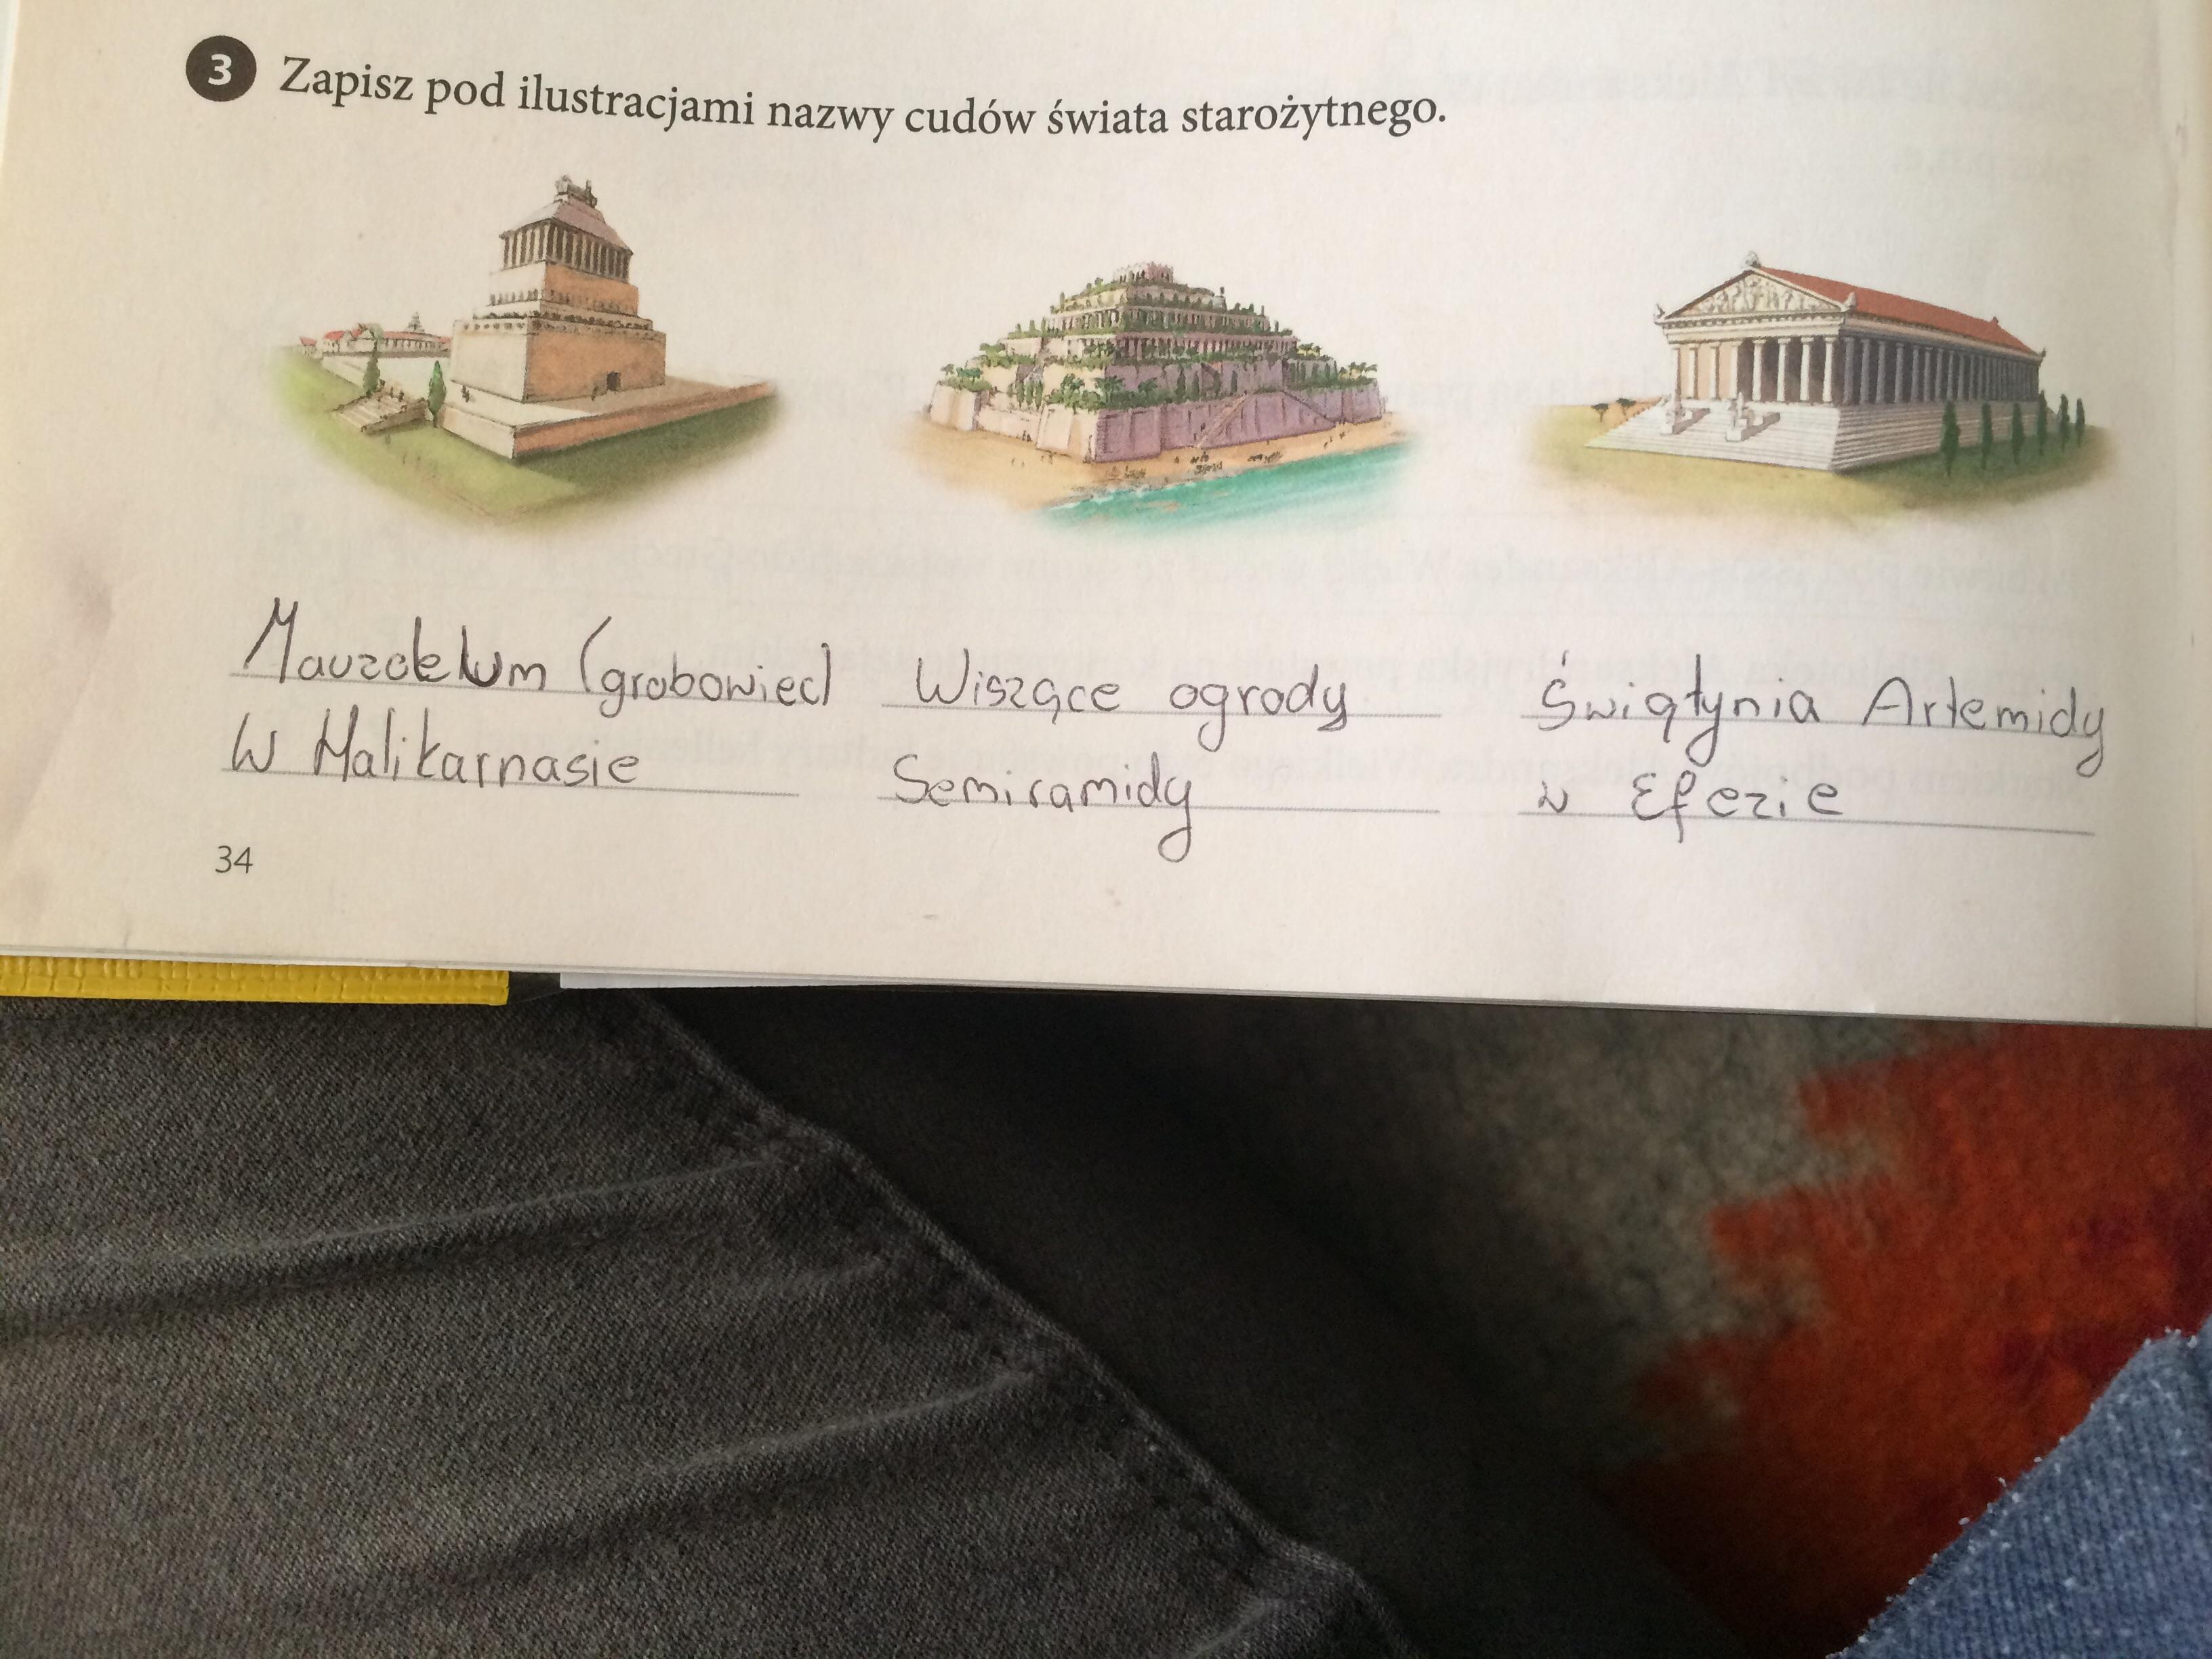 3 Zapisz pod ilustracjami nazwy cudów świata starożytnego.
Mauzoleum (grobowiec)
w Halikarnasie
Wiszące ogrody
Semiramidy
Świątynia Artemidy
w Efezie
34